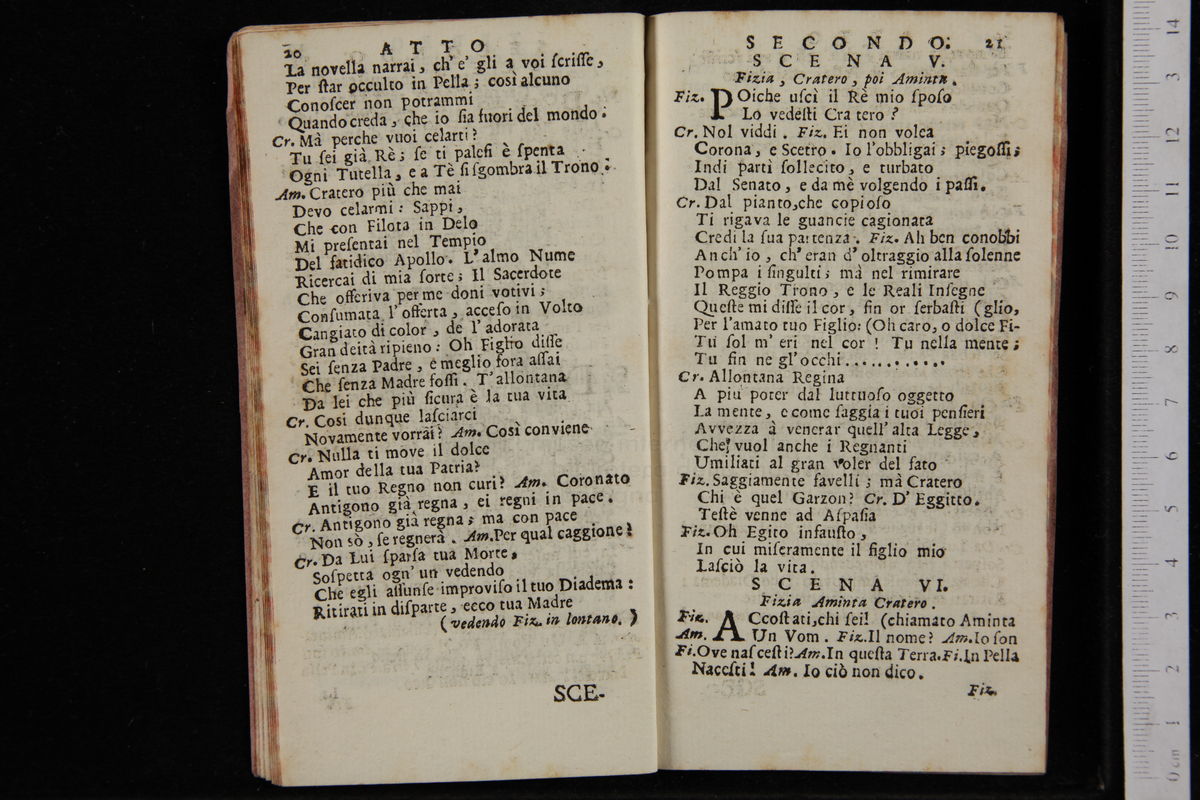 20 ATTO
La novella narrai, ch'e' gli a voi ſcriſſe,
Per ſtar occulto in Pella; così alcuno
Conoſcer non potrammi
Quando creda, che io ſia fuori del mondo:
Cr. Mà perche vuoi celarti?
Tu ſei già Rè; ſe ti paleſi è ſpenta
Ogni Tutella, e a Tè ſi ſgombra il Trono:
Am. Cratero più che mai
Devo celarmi: Sappi,
Che con Filota in Delo
Mi preſentai nel Tempio
Del fatidico Apollo. L'almo Nume
Ricercai di mia ſorte; Il Sacerdote
Che offeriva per me doni votivi;
Conſumata l'offerta, acceſo in Volto
Cangiato di color, de l'adorata
Gran deità ripieno: Oh Figlio diſſe
Sei ſenza Padre, e meglio fora aſſai
Che ſenza Madre foſſi. T'allontana
Da lei che più ſicura è la tua vita
Cr. Cosi dunque laſciarci
Novamente vorrai? Am. Così conviene
Cr. Nulla ti move il dolce
Amor della tua Patria?
E il tuo Regno non curi? Am. Coronato
Antigono già regna, ei regni in pace.
Cr. Antigono già regna; ma con pace
Non sò, ſe regnerà. Am. Per qual caggione?
Cr. Da Lui ſparſa tua Morte,
Soſpetta ogn' un vedendo
Che egli aſſunſe improviſo il tuo Diadema:
Ritirati in diſparte, ecco tua Madre
(vedendo Fiz. in lontano.)
SCE-
SECONDO. 21
SCENA V.
Fizia, Cratero, poi Aminta.
Fiz. POiche uſcì il Rè mio ſpoſo
Lo vedeſti Cra tero?
Cr. Nol viddi. Fiz. Ei non volea
Corona, e Scetro. Io l'obbligai; piegoſſi;
Indi partì ſollecito, e turbato
Dal Senato, e da mè volgendo i paſſi.
Cr. Dal pianto, che copioſo
Ti rigava le guancie cagionata
Credi la ſua partenza. Fiz. Ah ben conobbi
Anch' io, ch' eran d' oltraggio alla ſolenne
Pompa i ſingulti; mà nel rimirare
Il Reggio Trono, e le Reali Inſegne
Queſte mi diſſe il cor, fin or ſerbaſti (glio,
Per l'amato tuo Figlio: (Oh caro, o dolce Fi-
Tu ſol m' eri nel cor! Tu nella mente;
Tu fin ne gl'occhi............
Cr. Allontana Regina
A più poter dal luttuoſo oggetto
La mente, e come ſaggia i tuoi penſieri
Avvezza à venerar quell' alta Legge,
Che vuol anche i Regnanti
Umiliati al gran voler del fato
Fiz. Saggiamente favelli; mà Cratero
Chi è quel Garzon? Cr. D' Eggitto.
Teſtè venne ad Aſpaſia
Fiz. Oh Egito infauſto,
In cui miſeramente il figlio mio
Laſciò la vita.
SCENA VI.
Fizia Aminta Cratero.
Fiz. ACcoſtati, chi ſei! (chiamato Aminta
Am. Un Vom. Fiz. Il nome? Am. Io ſon
Fi. Ove naſceſti? Am. In queſta Terra. Fi. In Pella
Naceſti! Am. Io ciò non dico.
Fiz.